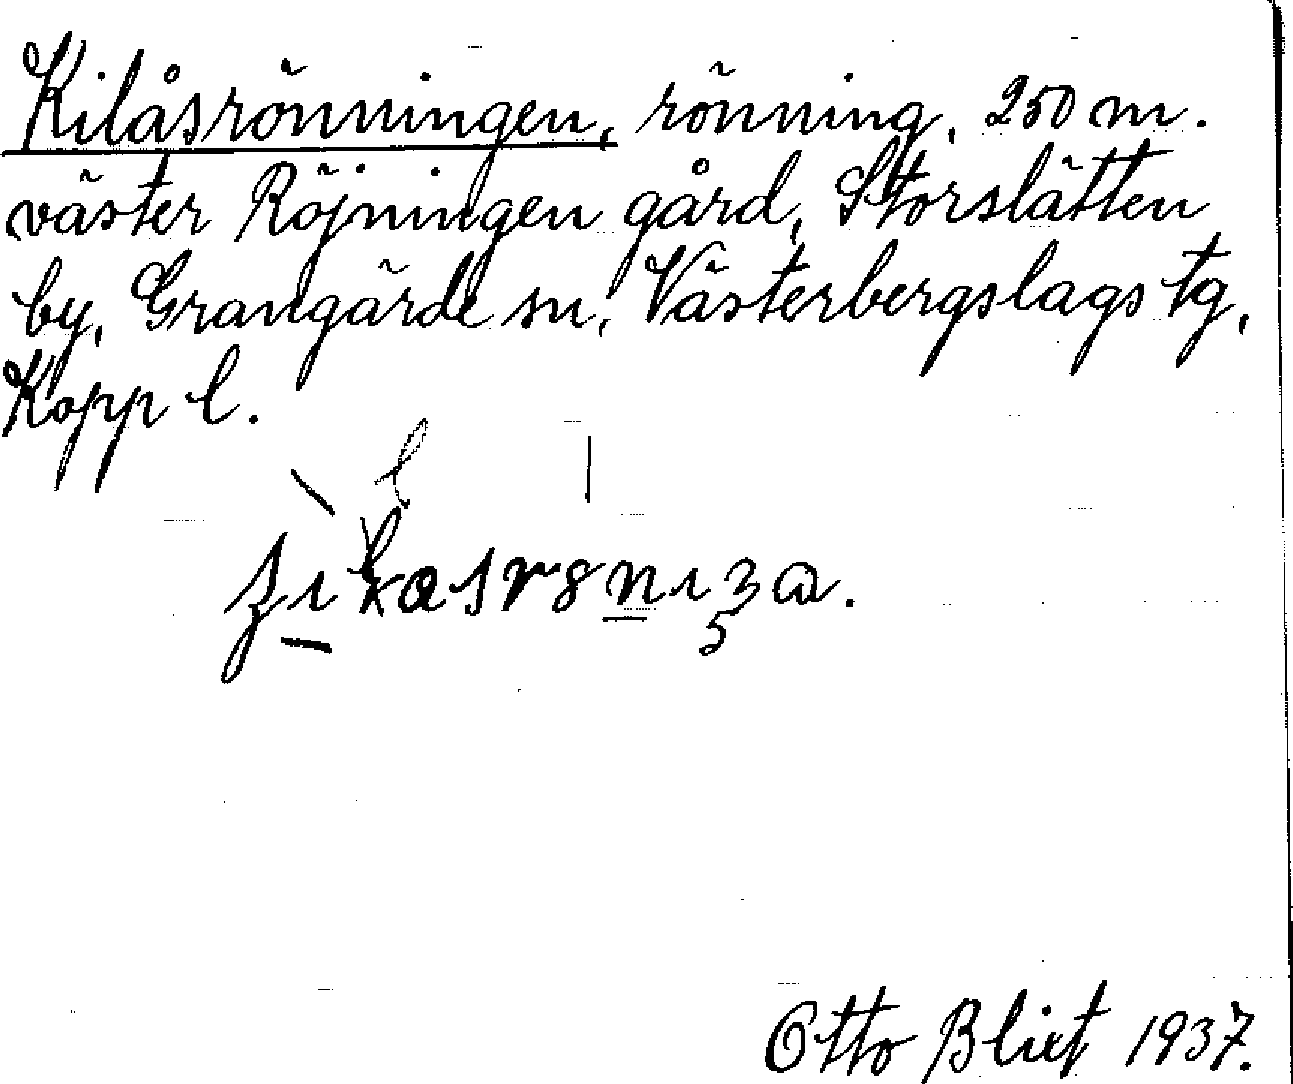 Kilåsrönningen, rönning, 250 m.
väster Röjningen gård, Storslätten
by, Grangärde sn, Västerbergslags tg,
Kopp l.
Otto Blixt 1937.